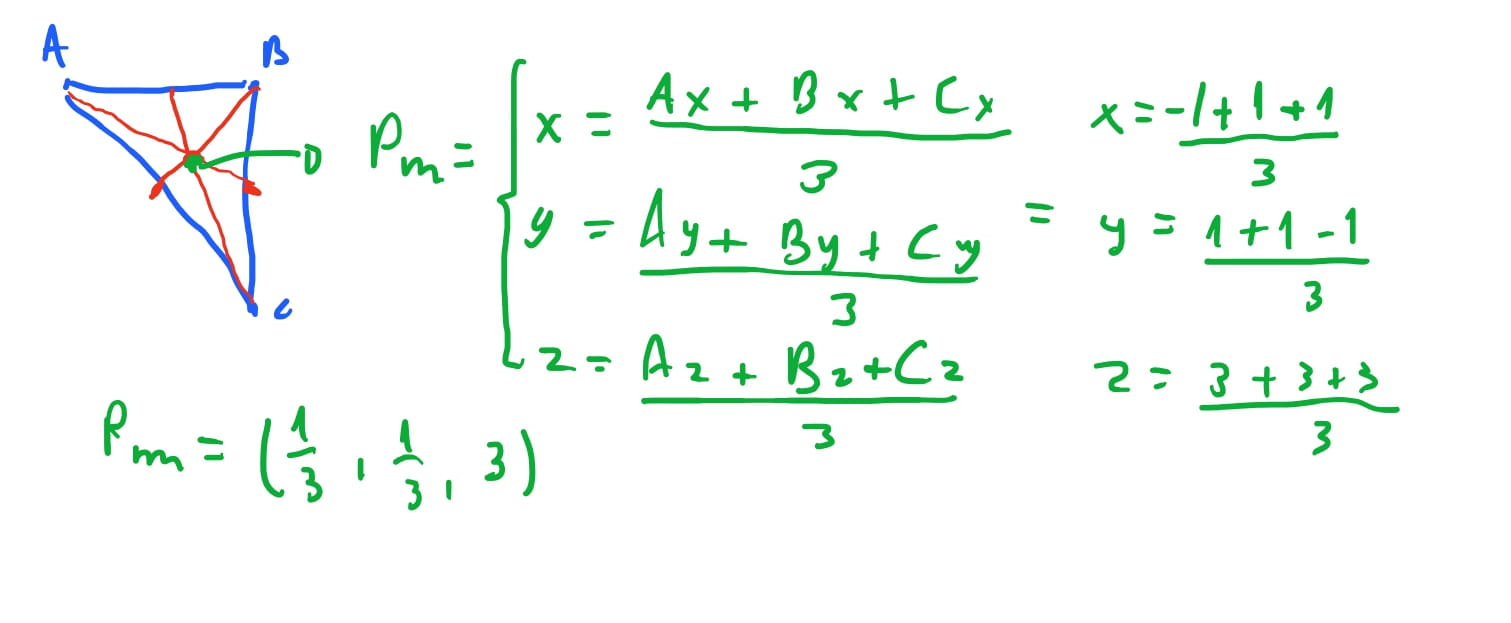 A
B
D
C
P_m = { x = (Ax + Bx + Cx)/3
y = (Ay + By + Cy)/3
z = (Az + Bz + Cz)/3
= x = (-1 + 1 + 1)/3
y = (1 + 1 - 1)/3
z = (3 + 3 + 3)/3
P_m = (1/3, 1/3, 3)